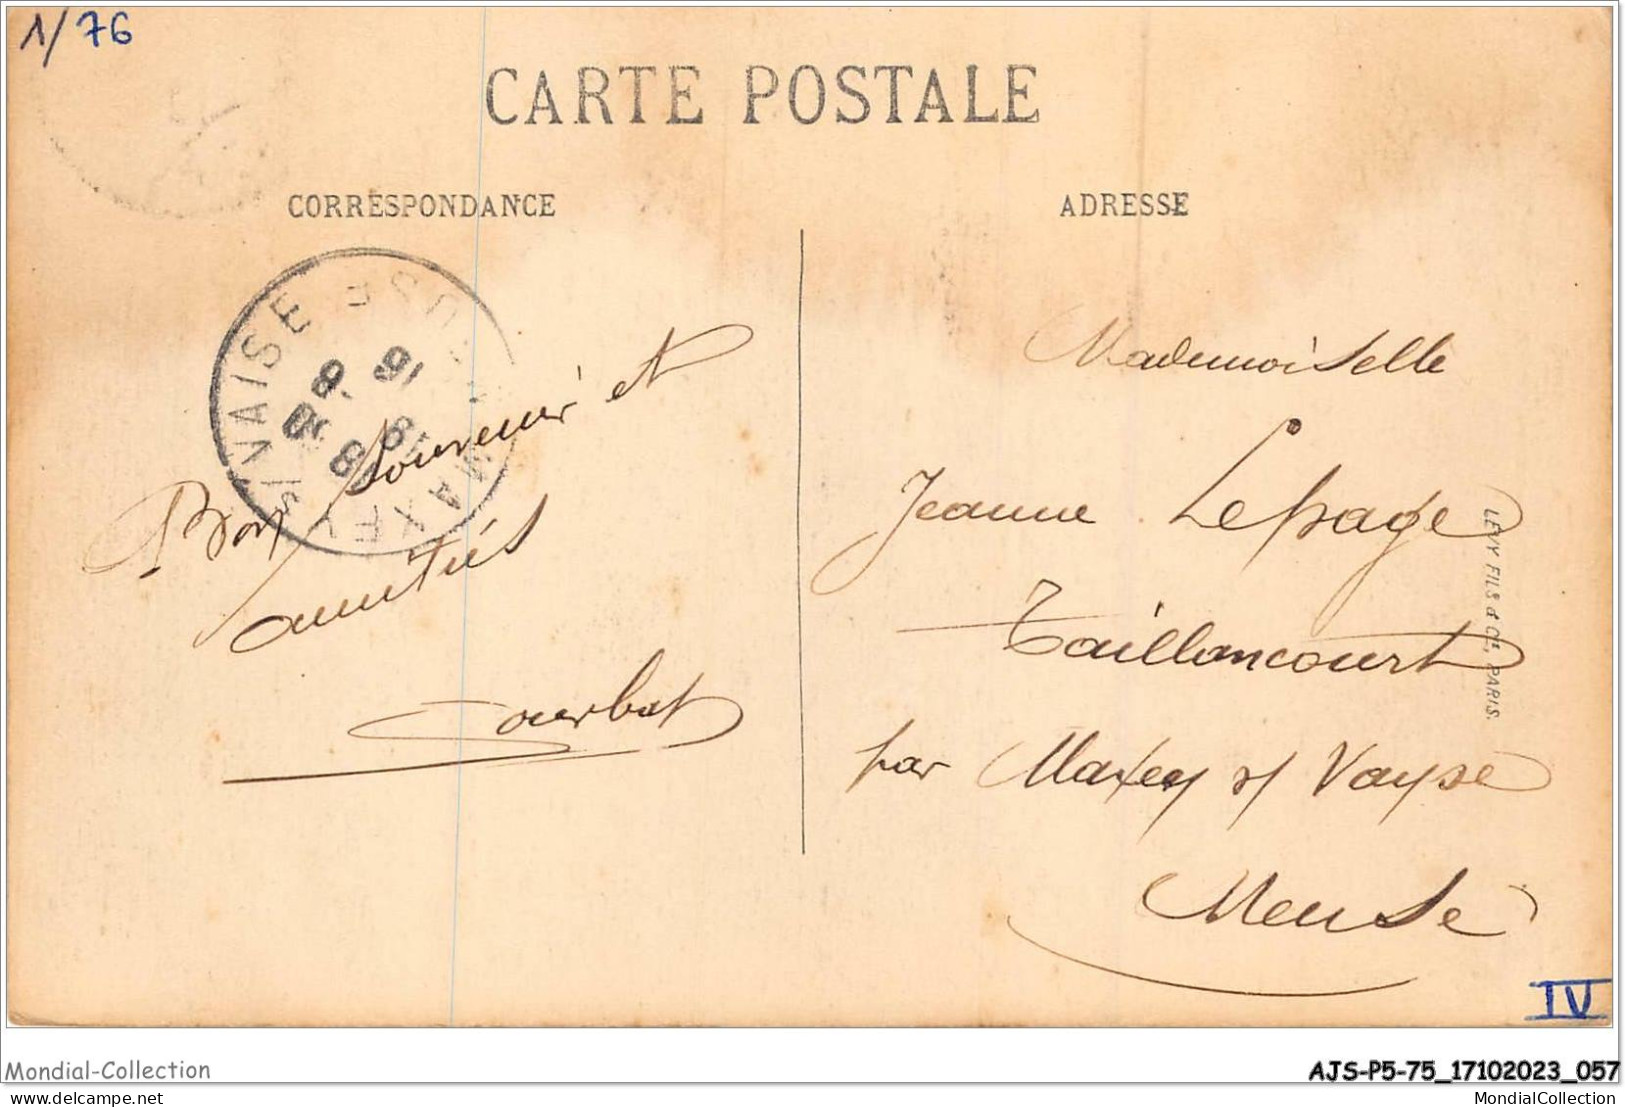 1/76
CARTE POSTALE
CORRESPONDANCE
ADRESSE
MAXEY S/ VAISE
Bon souvenir et
amitiés
Mademoiselle
Jeanne Lepage
Taillancourt
par Maxey s/ Vayse
Meuse
LÉVY FILS & Cie, PARIS.
IV
Mondial-Collection
AJS-P5-75_17102023_057
delcampe.net
MondialCollection